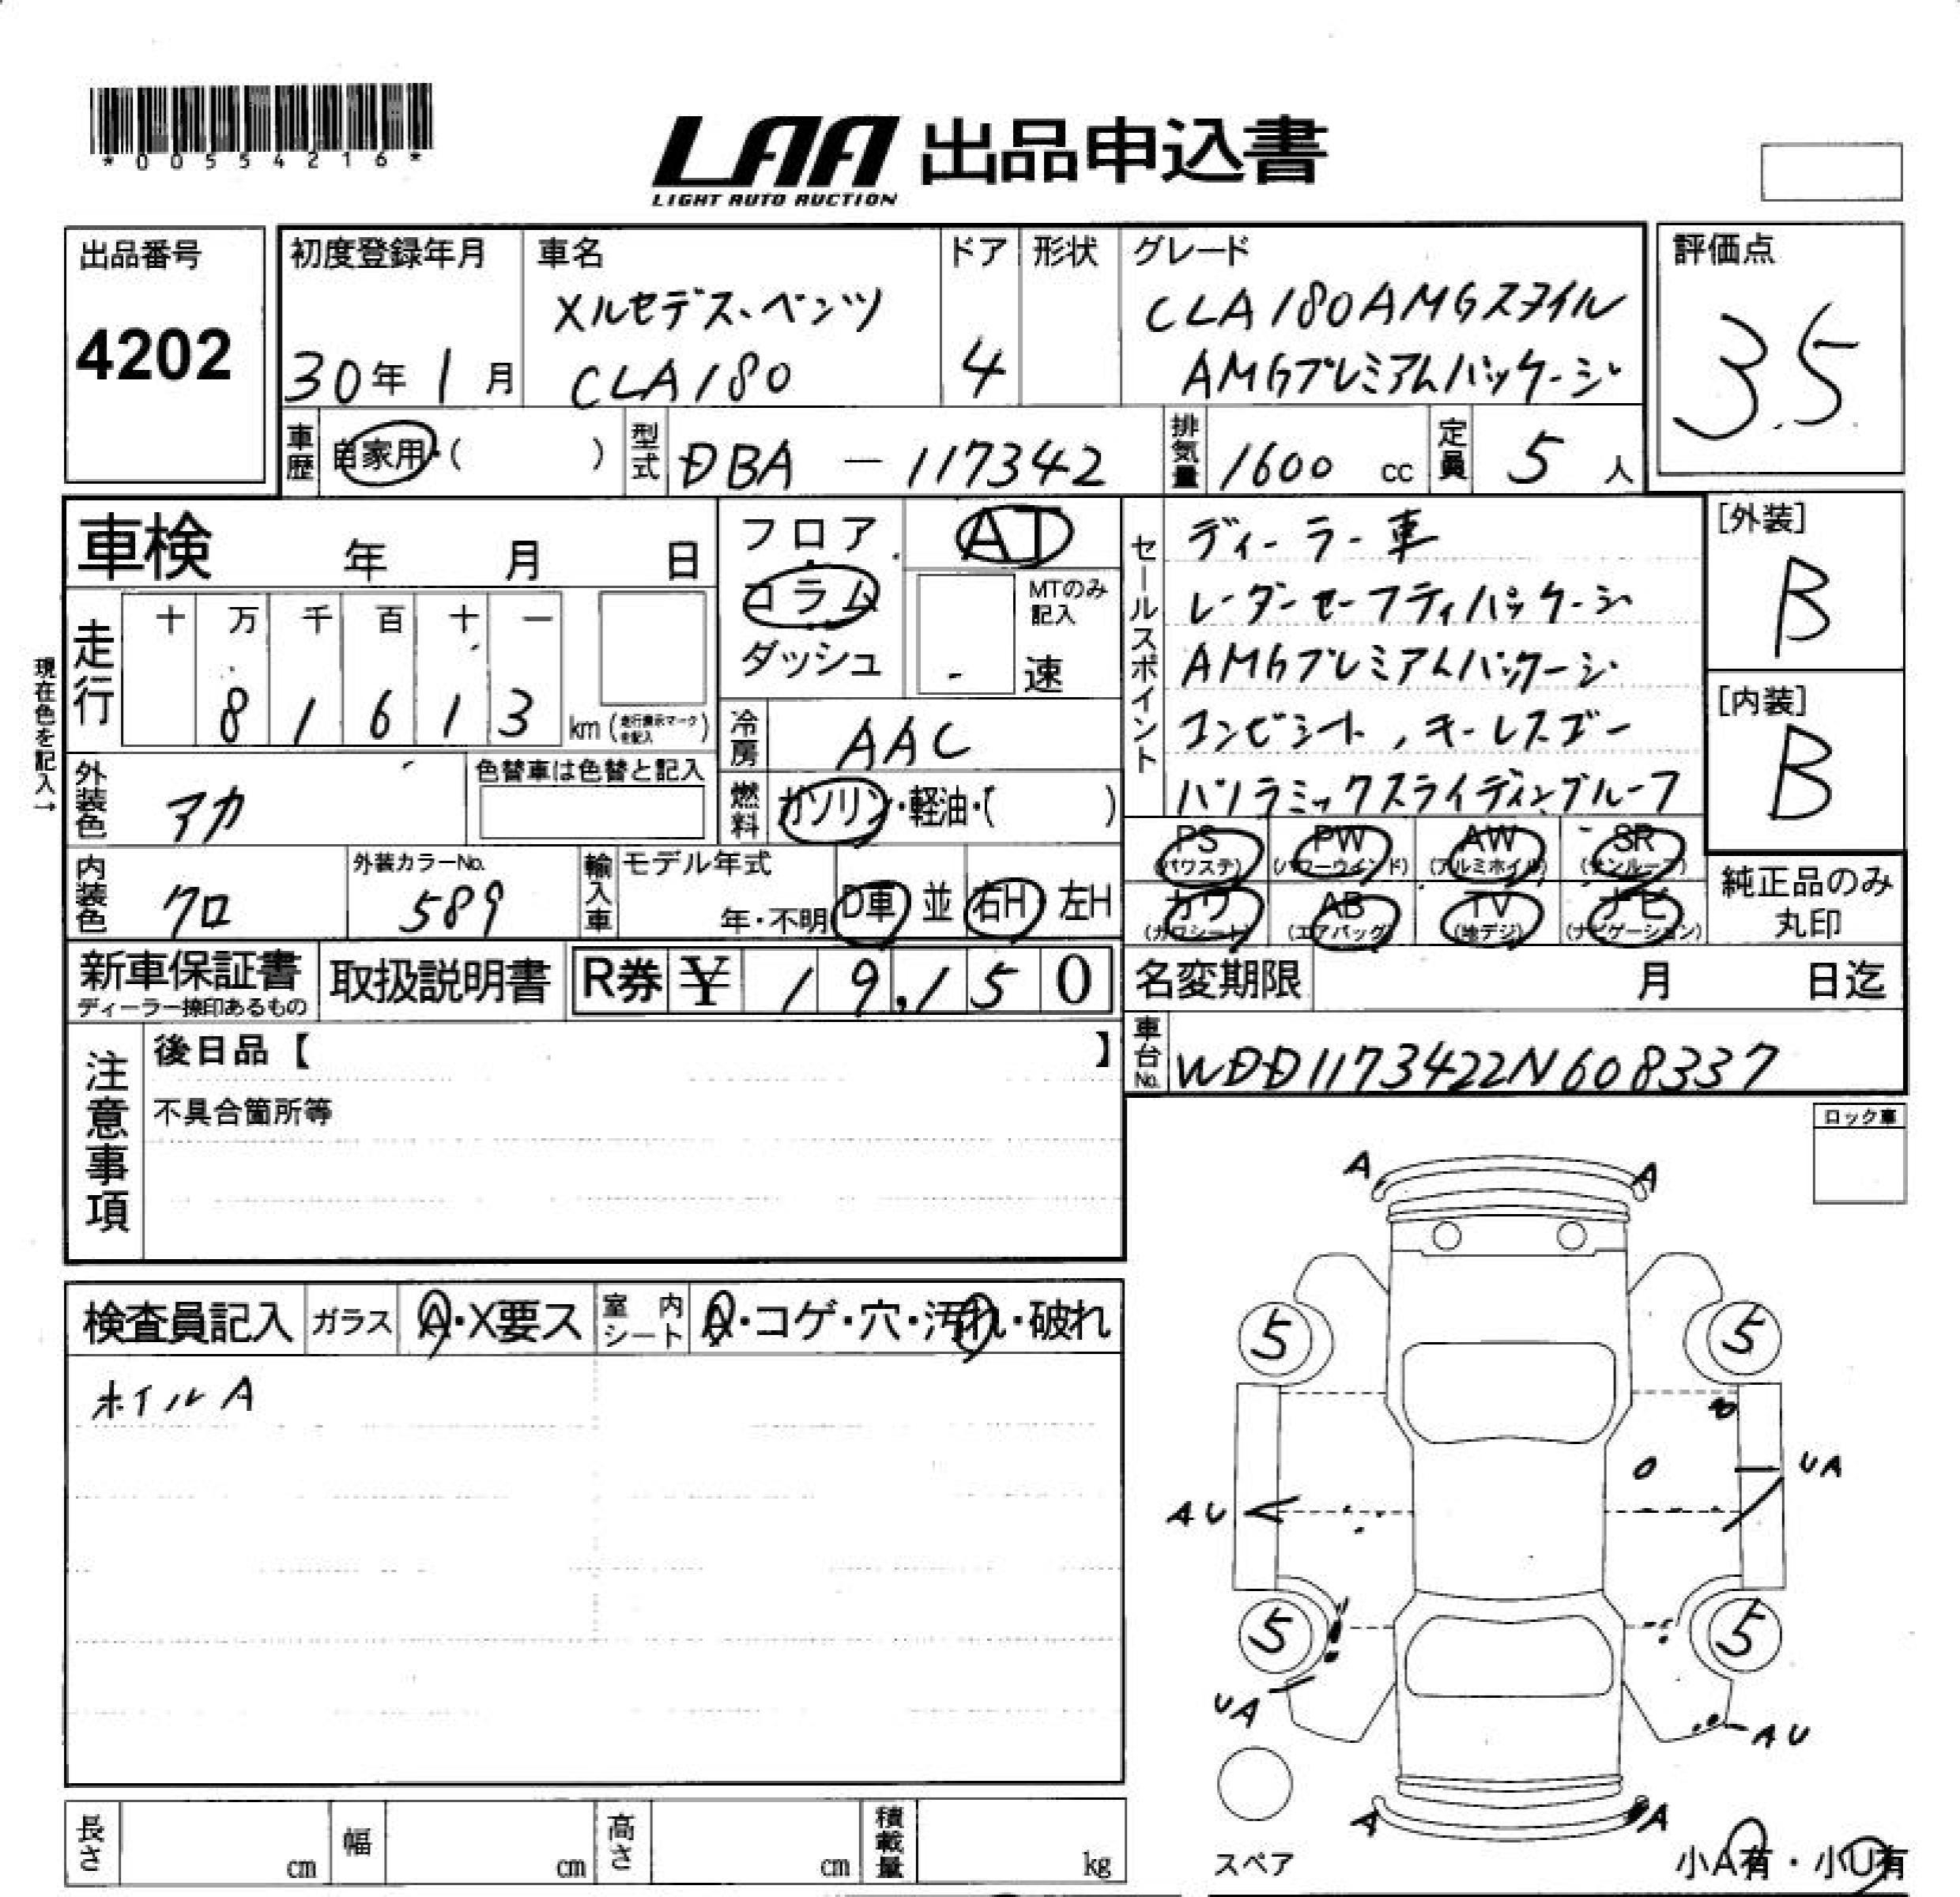 *00554216*
LAA 出品申込書
LIGHT AUTO AUCTION
出品番号
4202
初度登録年月
30年1月
車名
メルセデス、ベンツ
CLA180
ドア
4
形状
グレード
CLA180AMGスタイル
AMGプレミアムパッケージ
評価点
3.5
車歴
自家用・( )
型式
DBA － 117342
排気量
1600 cc
定員
5 人
車検 年 月 日
現在色を記入→
走行
十 万 千 百 十 一
8 1 6 1 3 km (走行表示マークを記入)
外装色
アカ
色替車は色替と記入
内装色
クロ
外装カラーNo.
589
フロア
コラム
ダッシュ
AT
MTのみ記入
速
冷房
AAC
燃料
ガソリン・軽油・( )
輸入車
モデル年式
年・不明
D車 並 右H 左H
セールスポイント
ディーラー車
レーダーセーフティパッケージ
AMGプレミアムパッケージ
コンビシート, キーレスゴー
パノラミックスライディングルーフ
[外装]
B
[内装]
B
PS (パワステ)
PW (パワーウインド)
AW (アルミホイル)
SR (サンルーフ)
カワ (カワシート)
AB (エアバッグ)
TV (地デジ)
ナビ (ナビゲーション)
純正品のみ
丸印
新車保証書
ディーラー捺印あるもの
取扱説明書
R券 ¥ 19,150
名変期限 月 日迄
車台No.
WDD1173422N608337
注意事項
後日品【 】
不具合箇所等
ロック車
検査員記入
ガラス A・X要ス
室内シート A・コゲ・穴・汚れ・破れ
ホイルA
A A
5 5
UA
AU
5 5
UA
AU
A A
スペア
小A有・小U有
長さ cm
幅 cm
高さ cm
積載量 kg